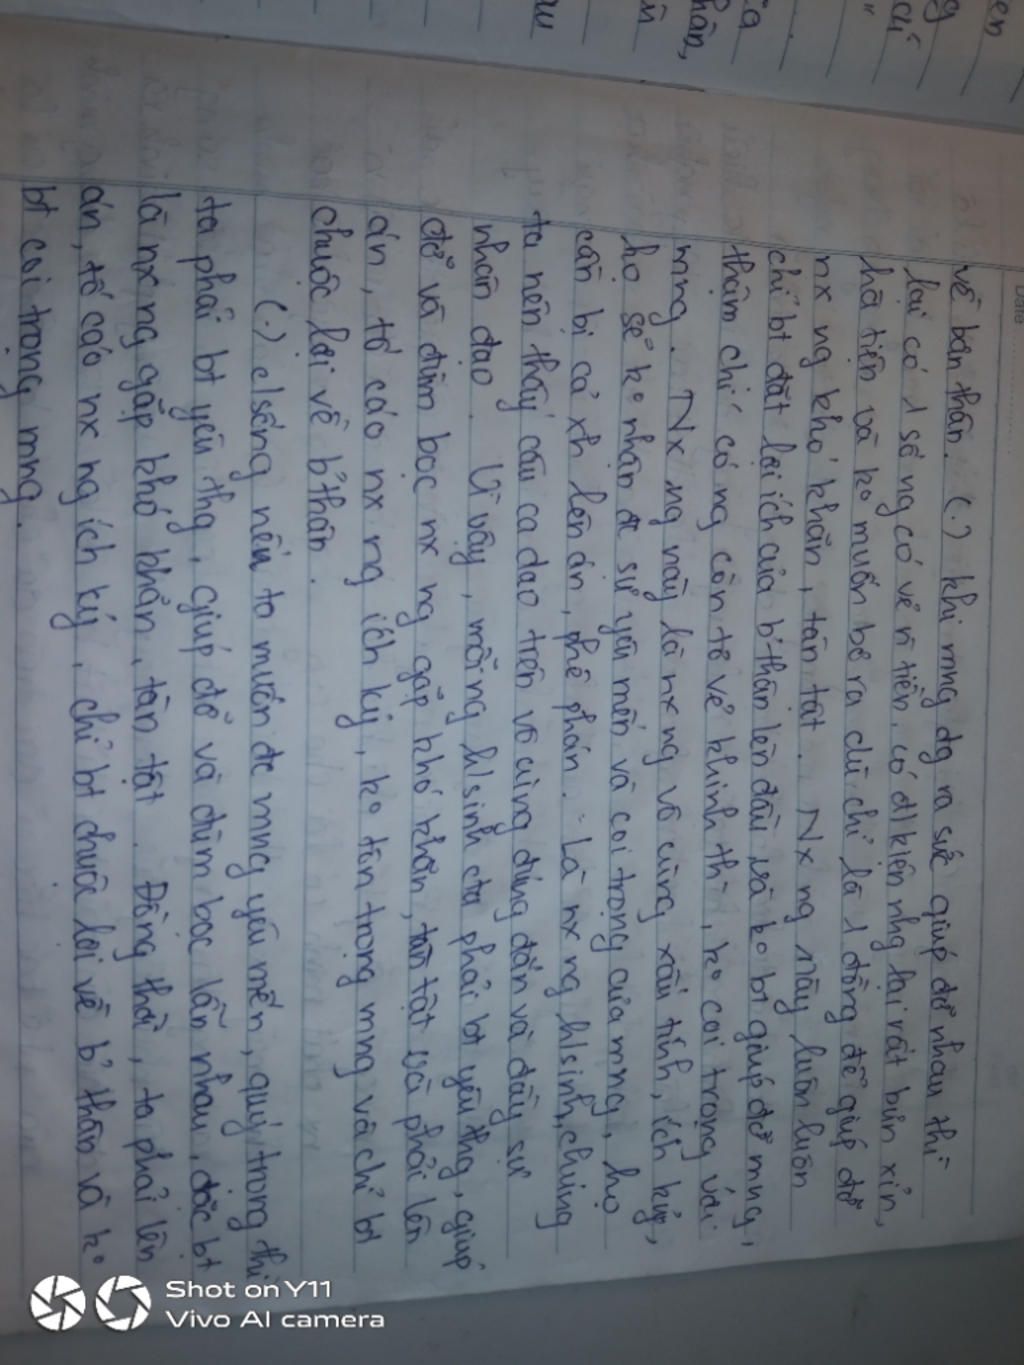 về bản thân. (.) khi mng dg ra sức giúp đỡ nhau thì
lại có 1 số ng có vẻ n̄ tiền, có đ/kiện nhg lại rất bủn xỉn,
hà tiện và ko muốn bỏ ra dù chỉ là 1 đồng để giúp đỡ
nx ng khó khăn, tàn tật. Nx ng này luôn luôn
chỉ bt đặt lợi ích của b'thân lên đầu và ko bt giúp đỡ mng,
thậm chí có ng còn tỏ vẻ khinh thị, ko coi trọng với
mng. Nx ng này là nx ng vô cùng xấu tính, ích kỷ,
họ sẽ ko nhận đc sự yêu mến và coi trọng của mng, họ
cần bị cả xh lên án, phê phán. Là nx ng h/sinh, chúng
ta nên thấy câu ca dao trên vô cùng đúng đắn và đầy sự
nhân đạo. Vì vậy, mỗi ng h/sinh cta phải bt yêu thg, giúp
đỡ và đùm bọc nx ng gặp khó khăn, tàn tật và phải lên
án, tố cáo nx ng ích kỷ, ko tôn trọng mng và chỉ bt
chuộc lợi về b'thân.
(.) c/sống nếu ta muốn đc mng yêu mến, quý trọng thì
ta phải bt yêu thg, giúp đỡ và đùm bọc lẫn nhau, đặc bt
là nx ng gặp khó khăn, tàn tật. Đồng thời, ta phải lên
án, tố cáo nx ng ích kỷ, chỉ bt chuộc lợi về b'thân và ko
bt coi trọng mng.
Date
Shot on Y11
Vivo AI camera